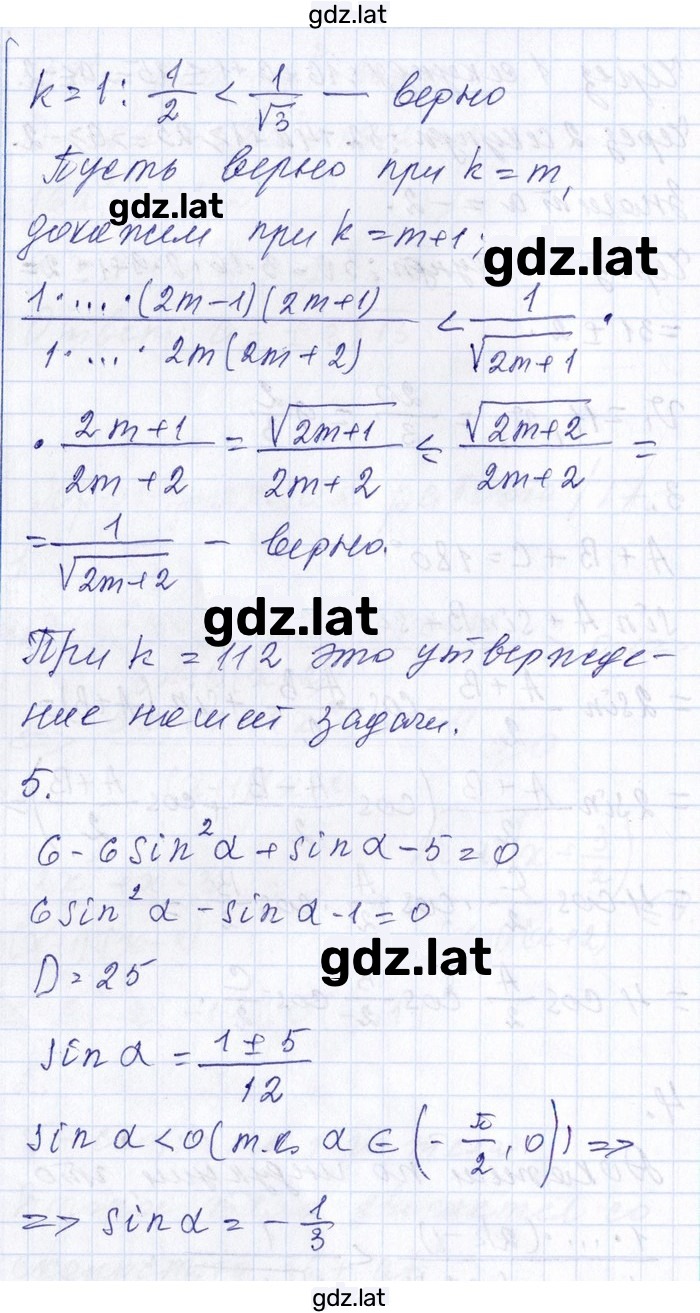 gdz.lat
k = 1: 1/2 < 1/√3 — верно
Пусть верно при k = m,
gdz.lat
докажем при k = m+1:
gdz.lat
1·...·(2m-1)(2m+1) / 1·...·2m(2m+2) < 1/√(2m+1) ·
· (2m+1)/(2m+2) = √(2m+1)/(2m+2) ≤ √(2m+2)/(2m+2) =
= 1/√(2m+2) - верно.
gdz.lat
При k = 112 это утвержде-
ние нашей задачи.
5.
6 - 6sin²α + sinα - 5 = 0
6sin²α - sinα - 1 = 0
gdz.lat
D = 25
sinα = (1 ± 5)/12
sinα < 0 (т.к. α ∈ (-π/2, 0)) =>
=> sinα = -1/3
gdz.lat